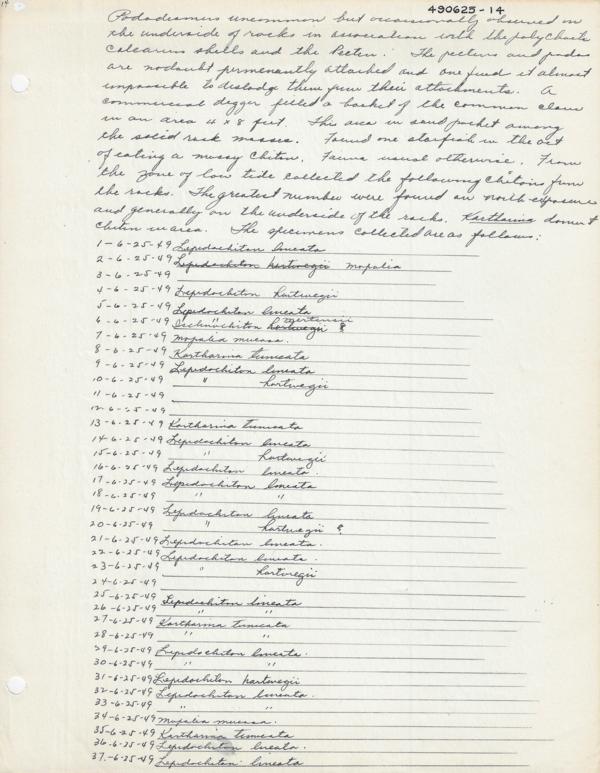 14
490625-14
Pododesmus uncommon but occasionally observed on
the underside of rocks in association with the polychaete
calcarius shells and the Pecten. The pectens and podos
are nodoubt permenantly attached and one finds it almost
impossible to dislodge them from their attachments. A
commercial digger filled a basket of the common clam
in an area 4 x 8 feet. The area in sand pocket among
the solid rock masses. Found one starfish in the act
of eating a mossy chiton. Fauna usual otherwise. From
the zone of low tide collected the following chitons from
the rocks. The greatest number were found on north exposure
and generally on the underside of the rocks. Katharina
chiton in area. The specimens collected are as follows:
1-6-25-49 Lepidochiton lineata
2-6-25-49 Lepidochiton hartwegii mopalia
3-6-25-49
4-6-25-49 Lepidochiton hartwegii
5-6-25-49 Lepidochiton lineata
6-6-25-49 Ischnochiton hartwegii mertensii ?
7-6-25-49 Mopalia mucosa.
8-6-25-49 Katharina tunicata
9-6-25-49 Lepidochiton lineata
10-6-25-49 " hartwegii
11-6-25-49
12-6-25-49
13-6-25-49 Katharina tunicata
14-6-25-49 Lepidochiton lineata
15-6-25-49 " hartwegii
16-6-25-49 Lepidochiton lineata.
17-6-25-49 Lepidochiton lineata
18-6-25-49 " "
19-6-25-49 Lepidochiton lineata
20-6-25-49 " hartwegii ?
21-6-25-49 Lepidochiton lineata.
22-6-25-49 Lepidochiton lineata.
23-6-25-49 " hartwegii
24-6-25-49
25-6-25-49 Lepidochiton lineata
26-6-25-49 " "
27-6-25-49 Katharina tunicata
28-6-25-49 " "
29-6-25-49 Lepidochiton lineata.
30-6-25-49 " "
31-6-25-49 Lepidochiton hartwegii
32-6-25-49 Lepidochiton lineata.
33-6-25-49 " "
34-6-25-49 Mopalia mucosa.
35-6-25-49 Katharina tunicata
36-6-25-49 Lepidochiton lineata.
37-6-25-49 Lepidochiton lineata